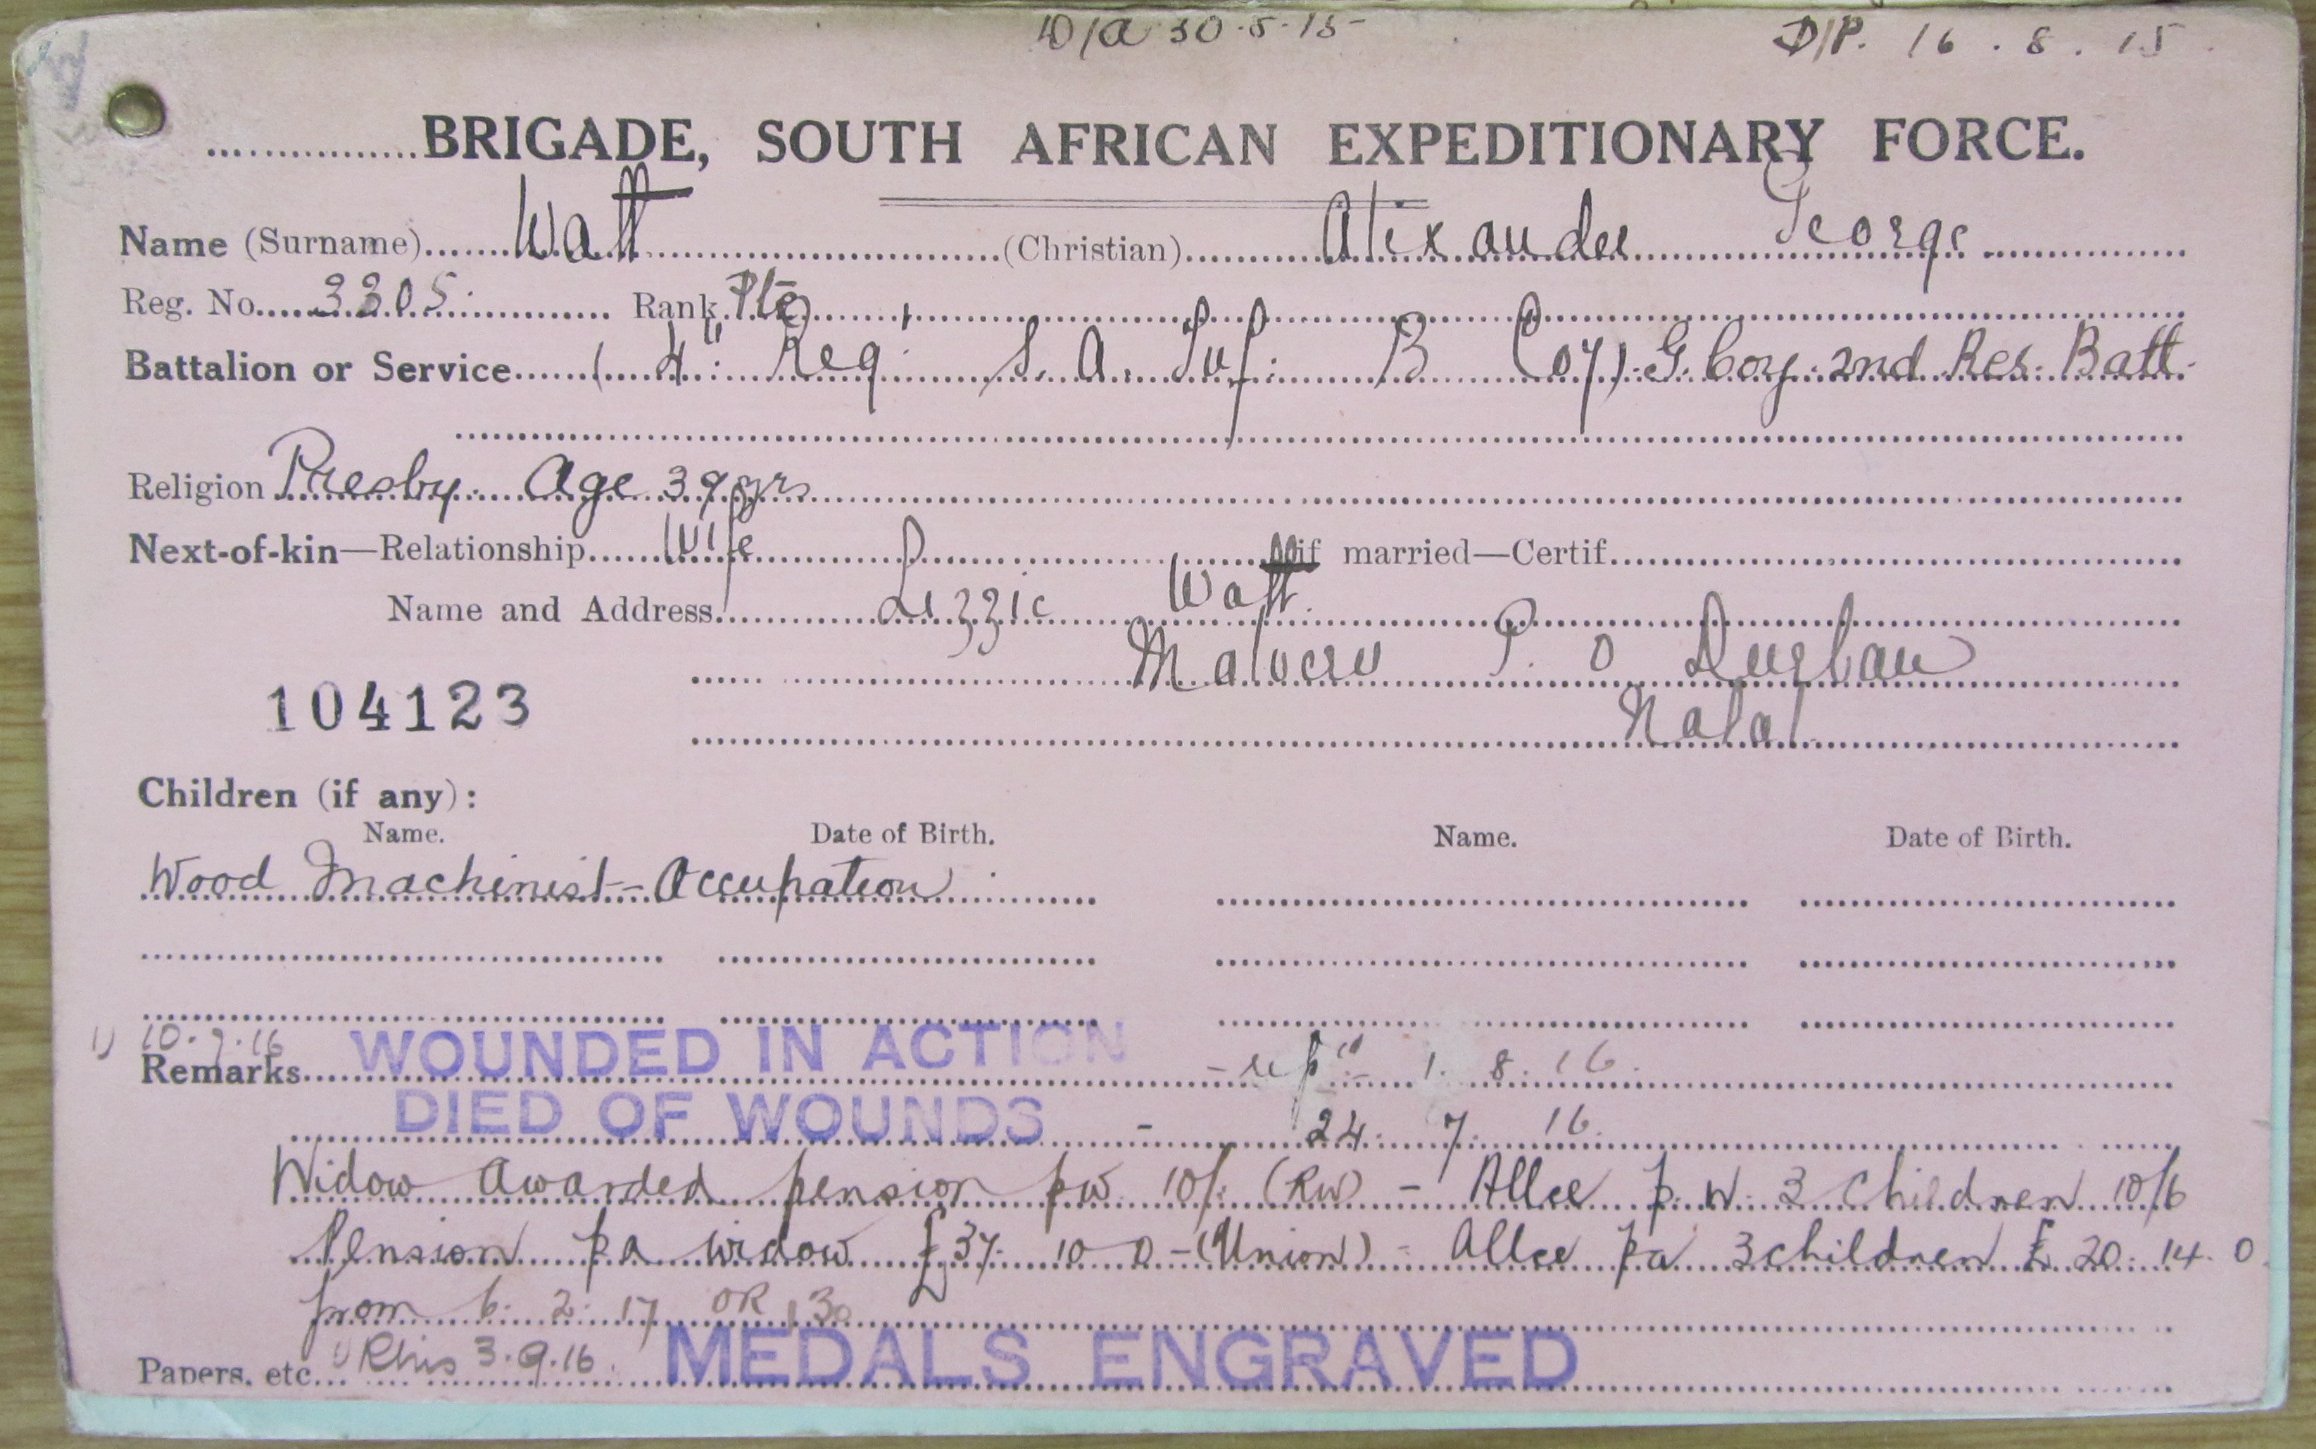 D/A 30.5.15 D/P. 16.8.15
BRIGADE, SOUTH AFRICAN EXPEDITIONARY FORCE.
Name (Surname) Watt (Christian) Alexander George
Reg. No. 3305 Rank Pte
Battalion or Service (4th Reg. S.A. Inf. B Coy) G Coy. 2nd Res. Batt.
Religion Presby. Age 39 yrs
Next-of-kin—Relationship Wife if married—Certif.
Name and Address Lizzie Watt
Malvern P.O Durban
104123 Natal
Children (if any):
Name. Date of Birth. Name. Date of Birth.
Wood Machinist - Occupation
1) 10.7.16
Remarks WOUNDED IN ACTION 1.8.16.
DIED OF WOUNDS - 24.7.16.
Widow awarded pension pw. 10/. (RW) - Allce p.w. 3 children 10/6
Pension pa widow £37. 10 0 - (Union) - Allce pa 3 children £20. 14. 0
from 6. 2. 17 OR 130
Papers, etc. 3.9.16. MEDALS ENGRAVED